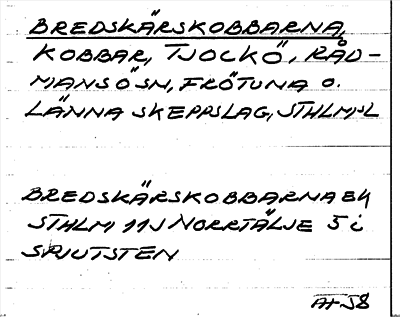 BREDSKÄRSKOBBARNA,
KOBBAR, TJOCKÖ, RÅD-
MANSÖ SN, FRÖTUNA O.
LÄNNA SKEPPSLAG, STHLMS L
BREDSKÄRSKOBBARNA BK
STHLM 11J NORRTÄLJE 5 i
SPJUTSTEN
58